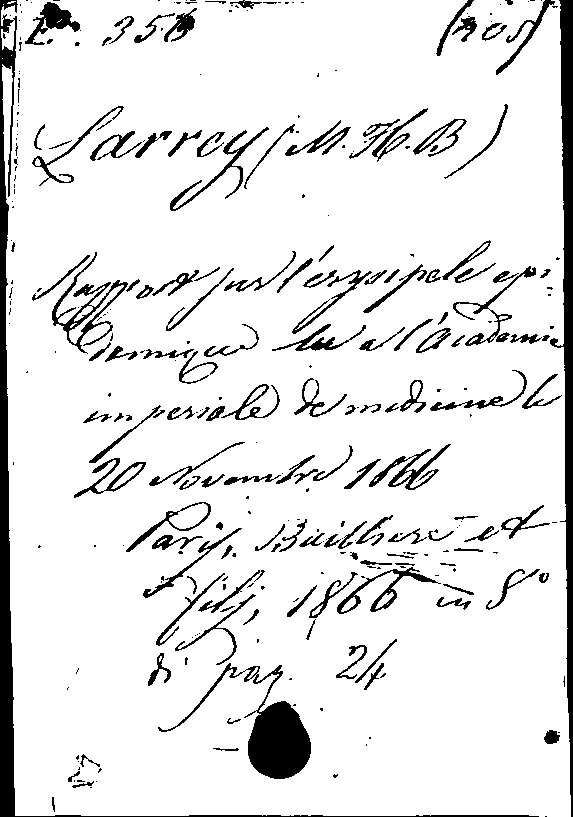 E. 356 (205)
Larrey (M. H. B)
Rapport sur l'érysipele epi-
demique lu a l'Academie
imperiale de medicine le
20 Novembre 1866
Paris, Bailliere et
fils, 1866 in 8°
di pag. 24